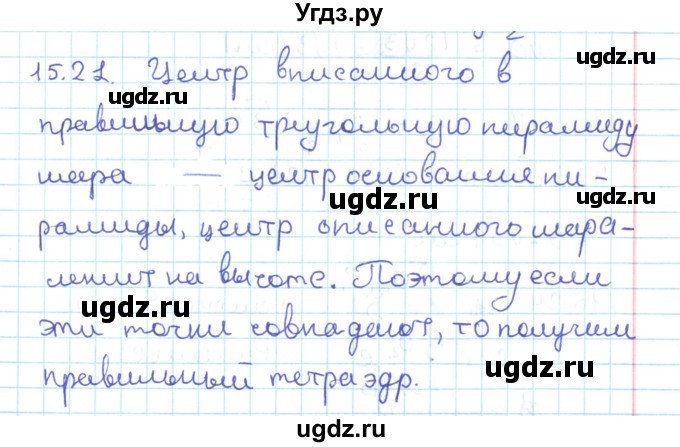 Угдз.ру
15.21. Центр вписанного в
ugdz.ru ugdz.ru
правильную треугольную пирамиду
ugdz.ru
шара — центр основания пи-
ugdz.ru
рамиды, центр описанного шара-
ugdz.ru
лежит на высоте. Поэтому если
ugdz.ru
эти точки совпадают, то получим
ugdz.ru ugdz.ru
правильный тетраэдр.
ugdz.ru